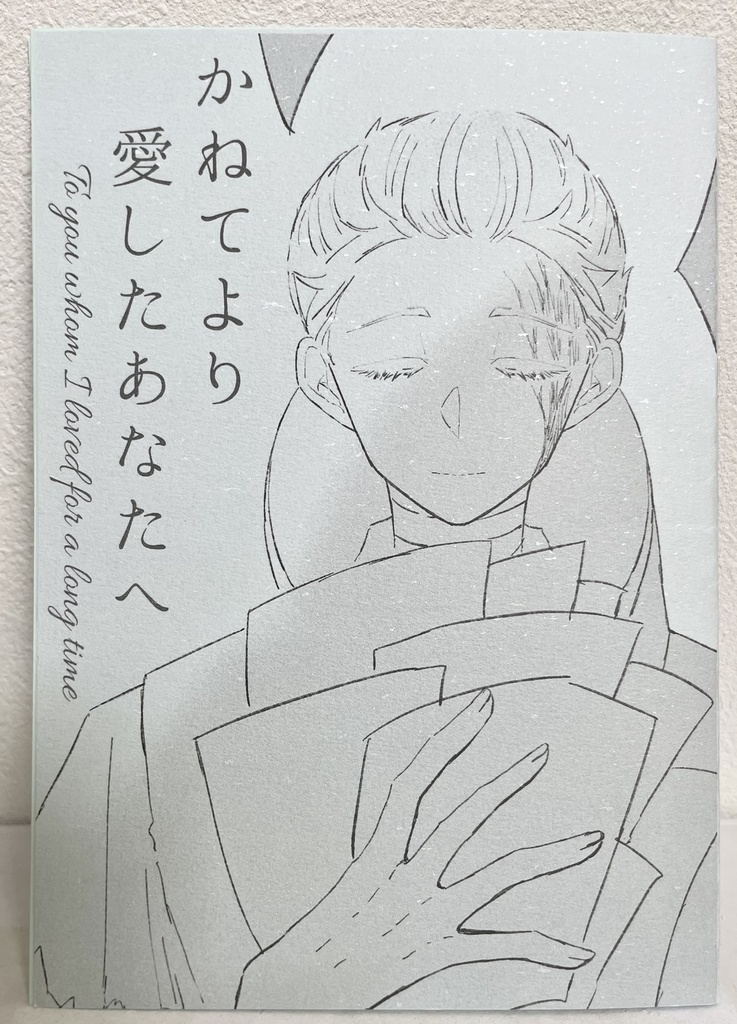 かねてより
愛したあなたへ
To you whom I loved for a long time